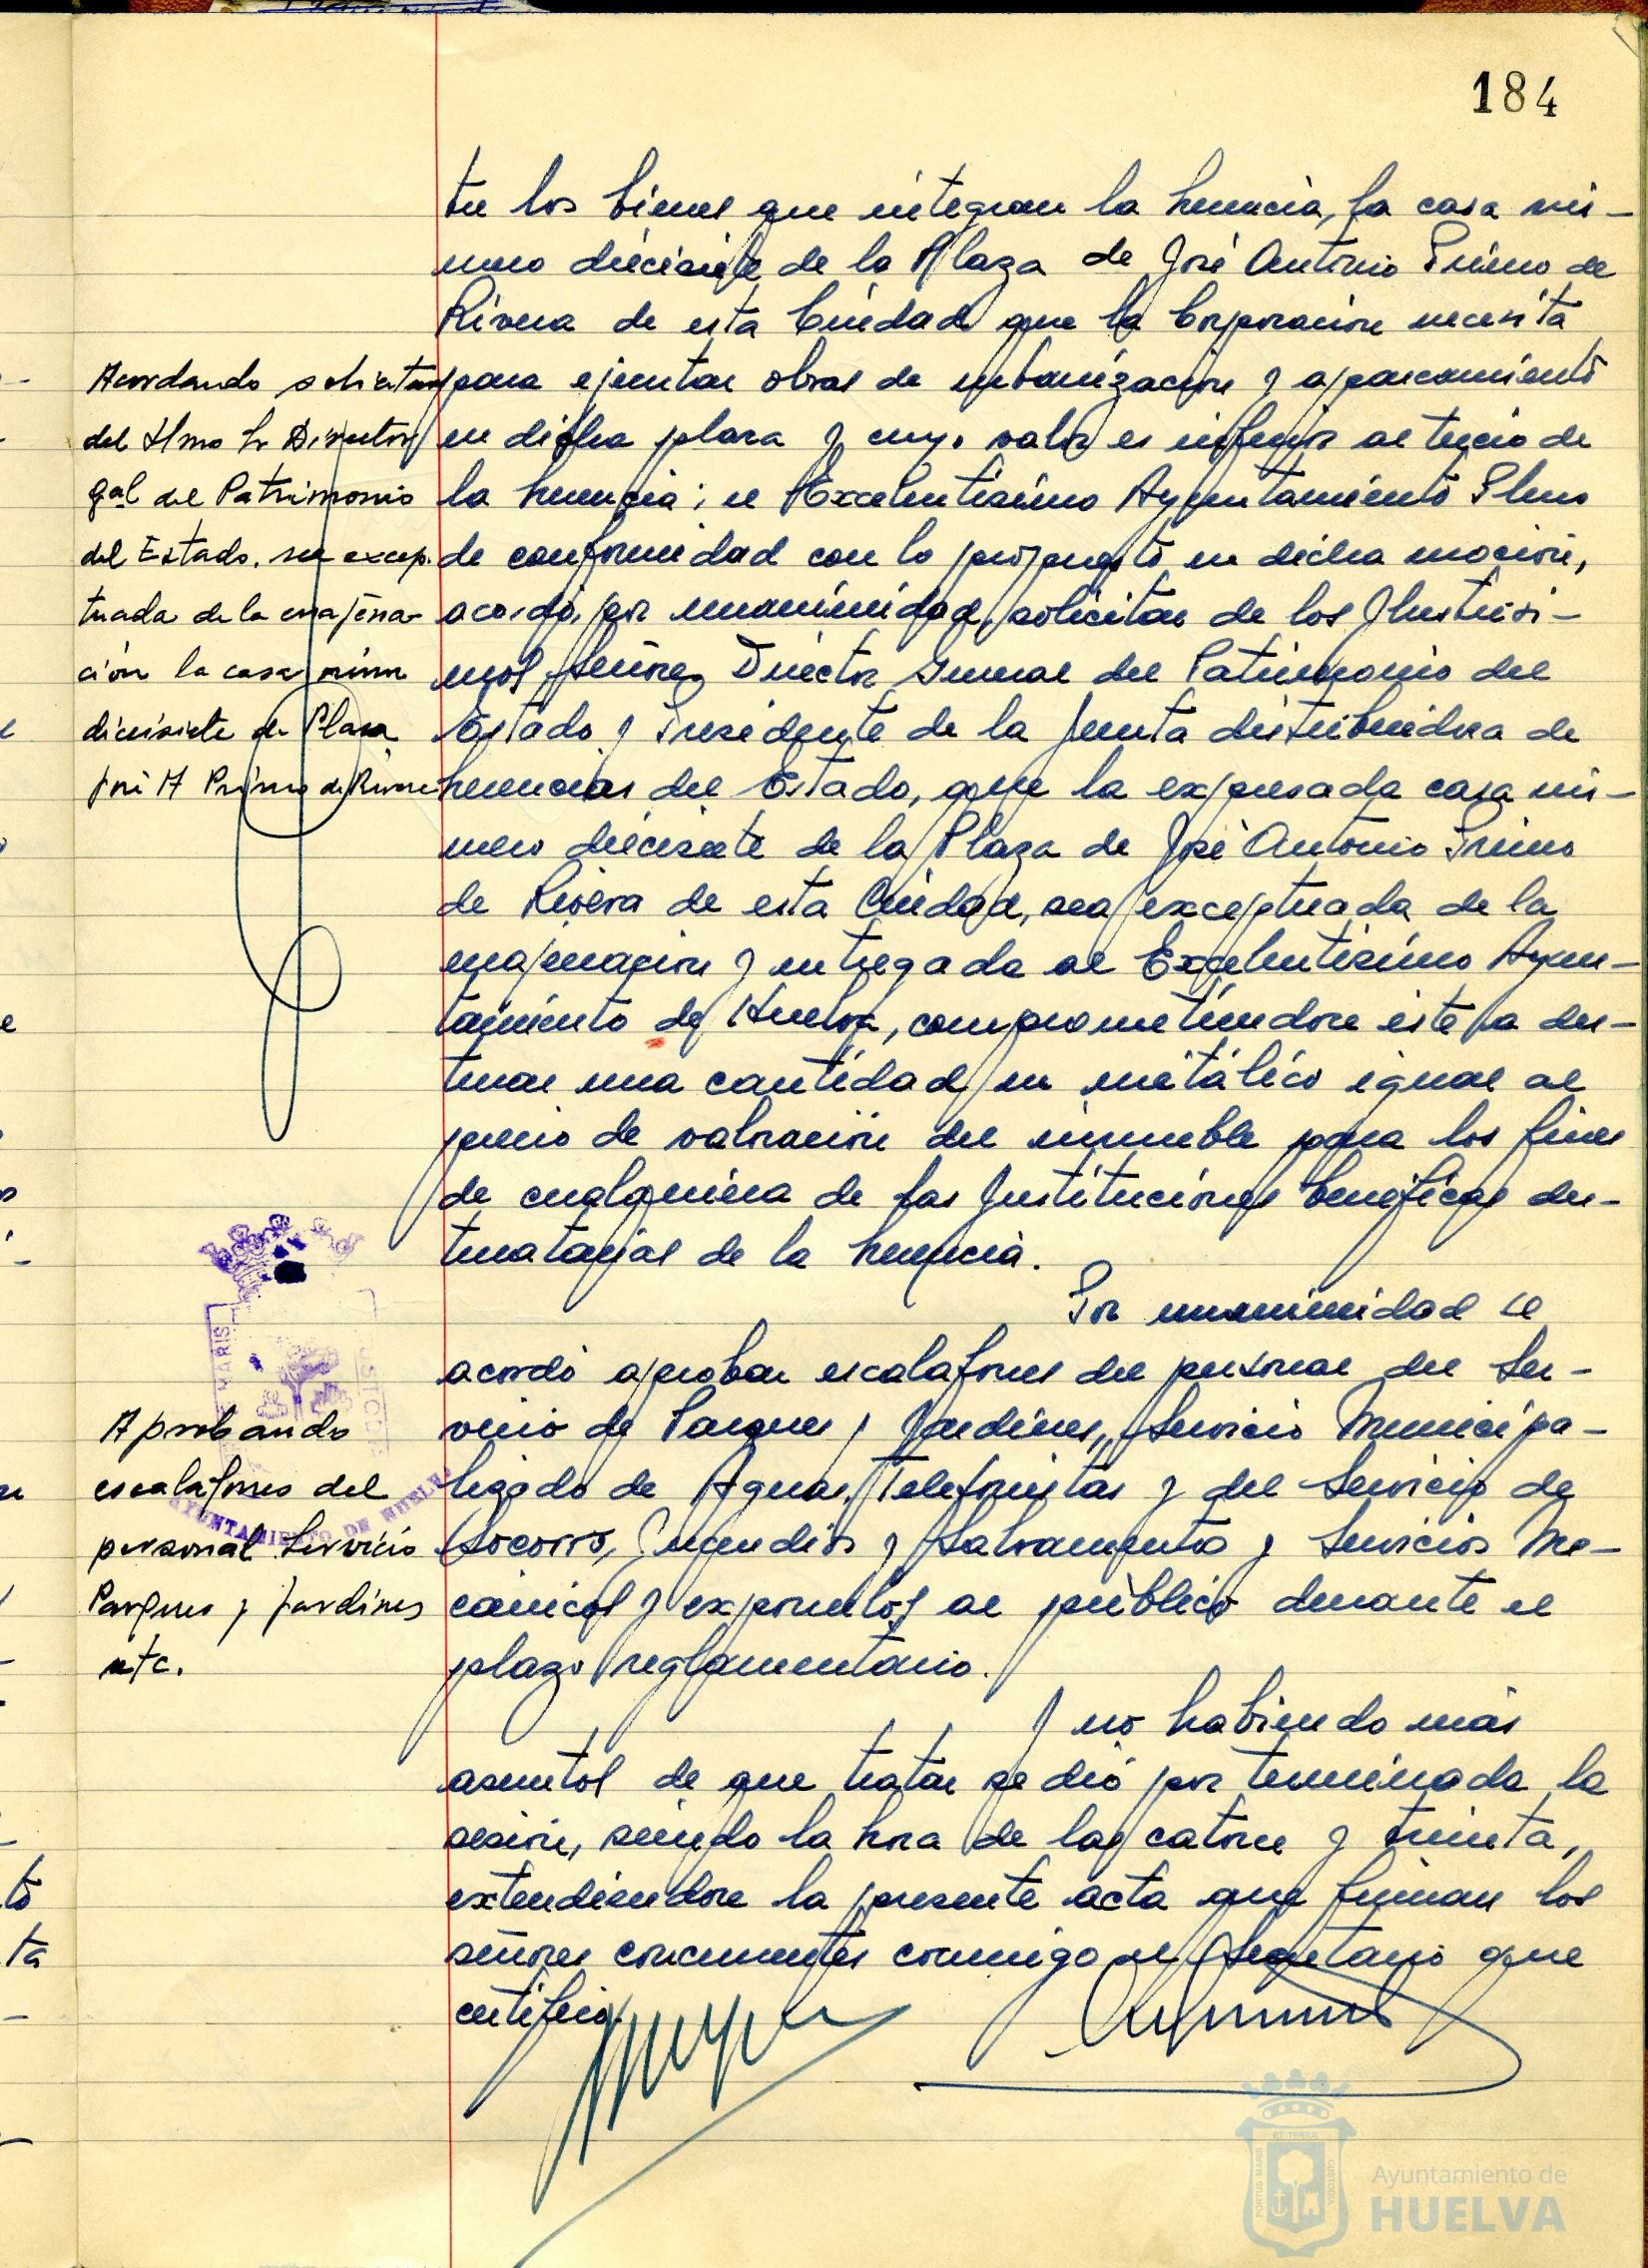 184
tre los bienes que integran la herencia, la casa nú-
mero diecisiete de la Plaza de José Antonio Primo de
Rivera de esta Ciudad que la Corporación necesita
para ejecutar obras de urbanización y aparcamiento
en dicha plaza y cuyo valor es inferior al tercio de
la herencia; el Excelentísimo Ayuntamiento Pleno
de conformidad con lo propuesto en dicha moción,
acordó, por unanimidad, solicitar de los Ilustrísi-
mos Señores Director General del Patrimonio del
Estado y Presidente de la Junta distribuidora de
herencias del Estado, que la expresada casa nú-
mero diecisiete de la Plaza de José Antonio Primo
de Rivera de esta Ciudad, sea exceptuada de la
enajenación y entregada al Excelentísimo Ayun-
tamiento de Huelva, comprometiendose éste a des-
tinar una cantidad en metálico igual al
precio de valoración del inmueble para los fines
de cualquiera de las Instituciones benéficas des-
tinatarias de la herencia.
Por unanimidad se
acordó aprobar escalafones del personal del Ser-
vicio de Parques y Jardines, Servicio Municipa-
lizado de Aguas, Telefonistas y del Servicio de
Socorro, Incendios y Salvamento y Servicios Me-
cánicos y exponerlos al público durante el
plazo reglamentario.
Y no habiendo más
asuntos de que tratar se dió por terminada la
sesión, siendo la hora de las catorce y treinta,
extendiendose la presente acta que firman los
señores concurrentes conmigo el Secretario que
certifico.
Acordando solicitar
del Ilmo Sr Director
gal del Patrimonio
del Estado, sea excep.
tuada de la enajena-
ción la casa núm
diecisiete de Plaza
José A Primo de Rivera
MARIS
CUSTODIA
AYUNTAMIENTO DE HUELVA
Aprobando
escalafones del
personal Servicio
Parques y Jardines
etc.
Ayuntamiento de
HUELVA